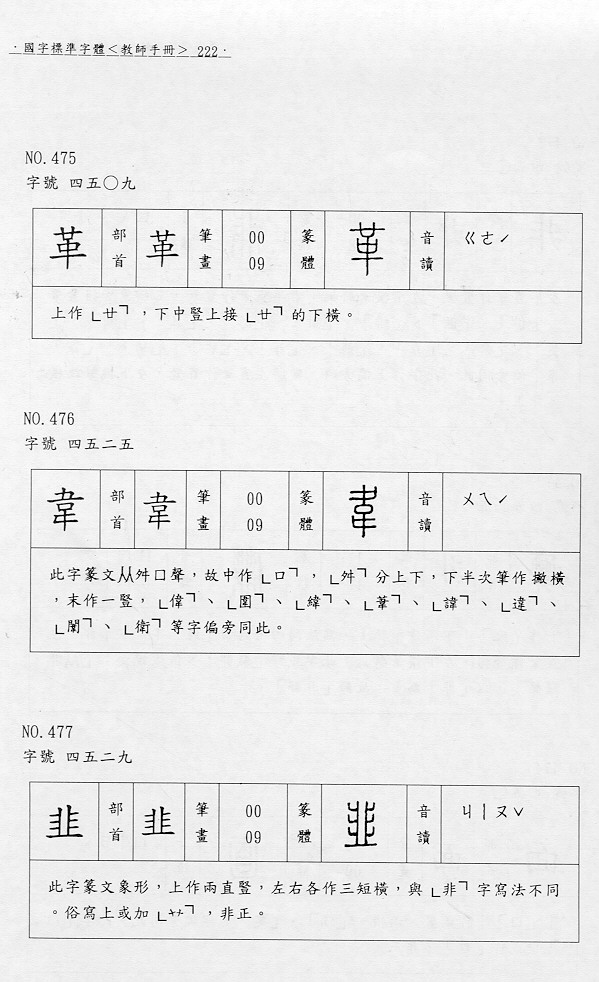 ·國字標準字體<教師手冊> 222·
NO.475
字號 四五〇九
革 部首 革 筆畫 00 09 篆體 革 音讀 ㄍㄜˊ
上作﹂廿﹁,下中豎上接﹂廿﹁的下橫。
NO.476
字號 四五二五
韋 部首 韋 筆畫 00 09 篆體 韋 音讀 ㄨㄟˊ
此字篆文从舛口聲,故中作﹂口﹁,﹂舛﹁分上下,下半次筆作撇橫
,末作一豎,﹂偉﹁、﹂圍﹁、﹂緯﹁、﹂葦﹁、﹂諱﹁、﹂違﹁、
﹂闈﹁、﹂衛﹁等字偏旁同此。
NO.477
字號 四五二九
韭 部首 韭 筆畫 00 09 篆體 韭 音讀 ㄐㄧㄡˇ
此字篆文象形,上作兩直豎,左右各作三短橫,與﹂非﹁字寫法不同
。俗寫上或加﹂艹﹁,非正。